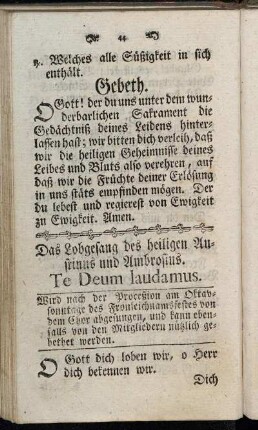 44
℟. Welches alle Süßigkeit in sich
enthält.
Gebeth.
O Gott! der du uns unter dem wun-
derbarlichen Sakrament die
Gedächtniß deines Leidens hinter-
lassen hast; wir bitten dich verleih, daß
wir die heiligen Geheimnisse deines
Leibes und Bluts also verehren, auf
daß wir die Früchte deiner Erlösung
in uns stäts empfinden mögen. Der
du lebest und regierest von Ewigkeit
zu Ewigkeit. Amen.
Das Lobgesang des heiligen Au-
stinus und Ambrosius.
Te Deum laudamus.
Wird nach der Proceßion am Oktav-
sonntage des Fronleichnamsfestes von
dem Chor abgesungen, und kann eben-
falls von den Mitgliedern nützlich ge-
bethet werden.
O Gott dich loben wir, o Herr
dich bekennen wir.
Dich